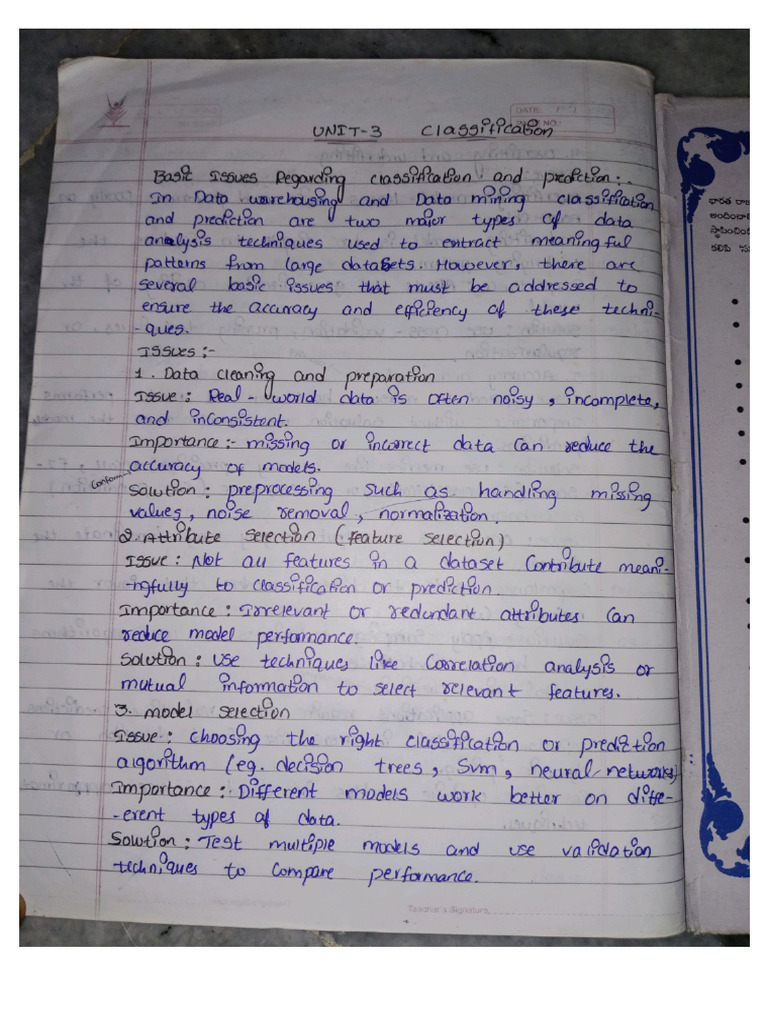 DATE:
UNIT-3 Classification
Basic Issues Regarding classification and prediction:-
In Data warehousing and Data mining classification
and prediction are two major types of data
analysis techniques used to extract meaningful
patterns from large datasets. However, there are
several basic issues that must be addressed to
ensure the accuracy and efficiency of these techni-
-ques.
Issues:-
1. Data cleaning and preparation
Issue: Real-world data is often noisy, incomplete,
and inconsistent.
Importance:- missing or incorrect data can reduce the
accuracy of models.
Solution: preprocessing such as handling missing
values, noise removal, normalization.
2. Attribute selection (feature selection)
Issue: Not all features in a dataset contribute meani-
-ngfully to classification or prediction.
Importance: Irrelevant or redundant attributes can
reduce model performance.
Solution: Use techniques like correlation analysis or
mutual information to select relevant features.
3. model selection
Issue: choosing the right classification or prediction
algorithm (eg. decision trees, Svm, neural networks)
Importance: Different models work better on diffe-
-erent types of data.
Solution: Test multiple models and use validation
techniques to compare performance.
Teacher's Signature
భారత రాజ